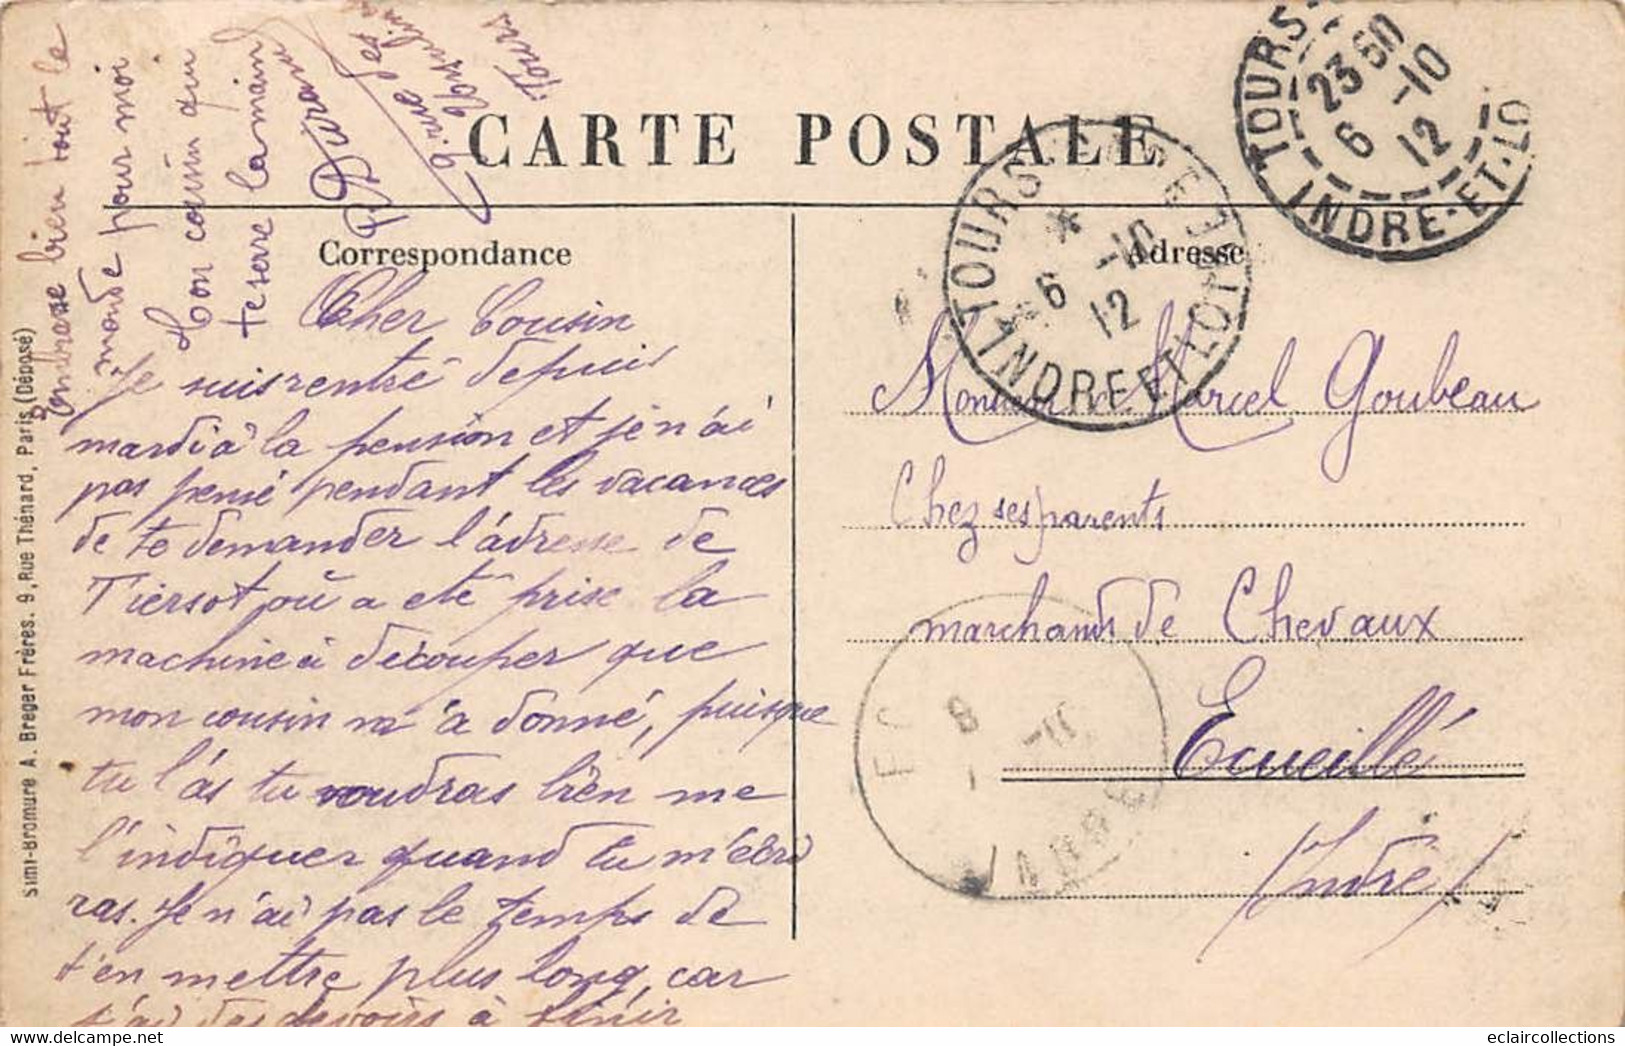 CARTE POSTALE
Correspondance
Adresse
Cher Cousin
Je suis rentré depuis
mardi à la pension et je n'ai
pas pensé pendant les vacances
de te demander l'adresse de
Tiersot où a eté prise la
machine à découper que
mon cousin m'a donné, puisque
tu l'as tu voudras bien me
l'indiquer quand tu m'écri
ras. Je n'ai pas le temps de
t'en mettre plus long, car
j'ai des devoirs à finir
embrasse bien tout le
monde pour moi
Ton cousin qui
te serre la main
R Durand
9. rue des
Ursulines
Tours
Monsieur Marcel Goubeau
Chez ses parents
marchands de Chevaux
Ecueillé
Indre
TOURS
2350
6 -10
12
INDRE-ET-LO
TOURS
*
6 -10
12
INDRE ET LOIRE
EC
8
INDRE
Simi-Bromure A. Breger Frères. 9, Rue Thénard, Paris (Déposé)
www.delcampe.net
eclaircollections